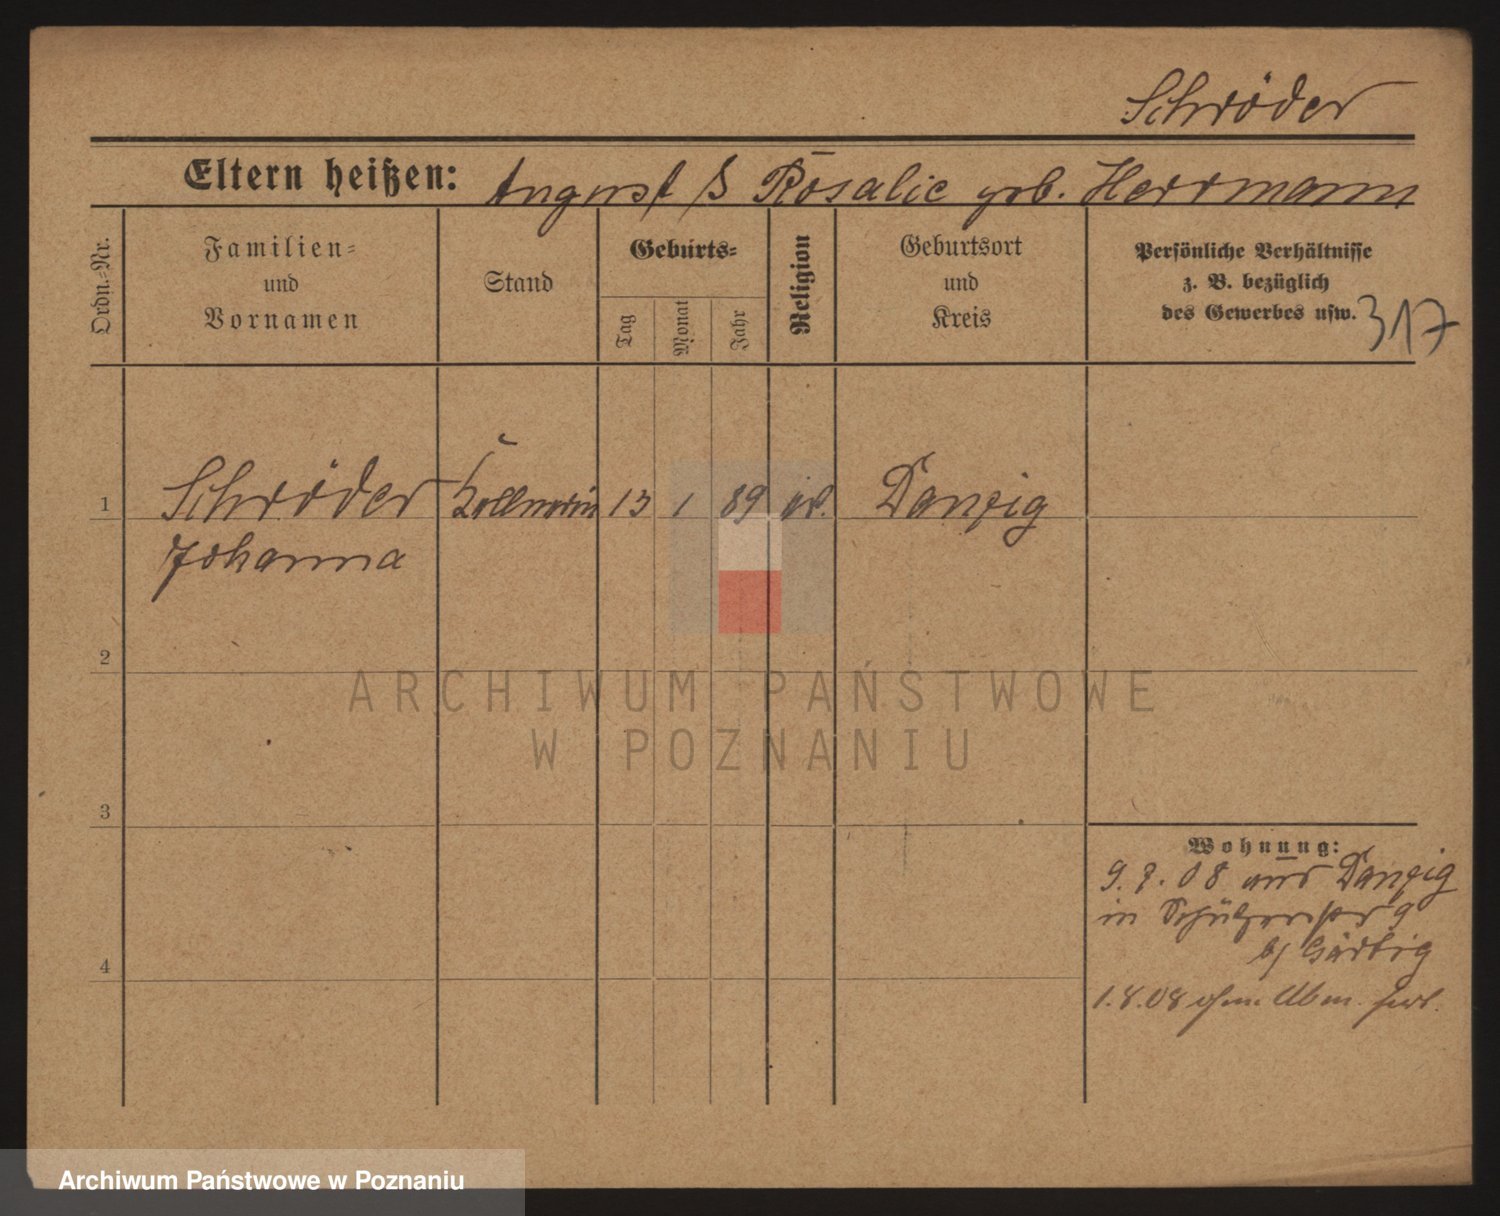 Schröder
Eltern heißen: August & Rosalie geb. Herrmann
Ordn.-Nr.
Familien-
und
Vornamen
Stand
Geburts-
Tag
Monat
Jahr
Religion
Geburtsort
und
Kreis
Persönliche Verhältnisse
z. B. bezüglich
des Gewerbes usw.
317
1 Schröder Kellnerin 13 1 89 Danzig
Johanna
2
3
4
Wohnung:
9. 7. 08 aus Danzig
in Schützenstr 9
b/
1.8.08 ohne Abm.
ARCHIWUM PAŃSTWOWE
W POZNANIU
Archiwum Państwowe w Poznaniu